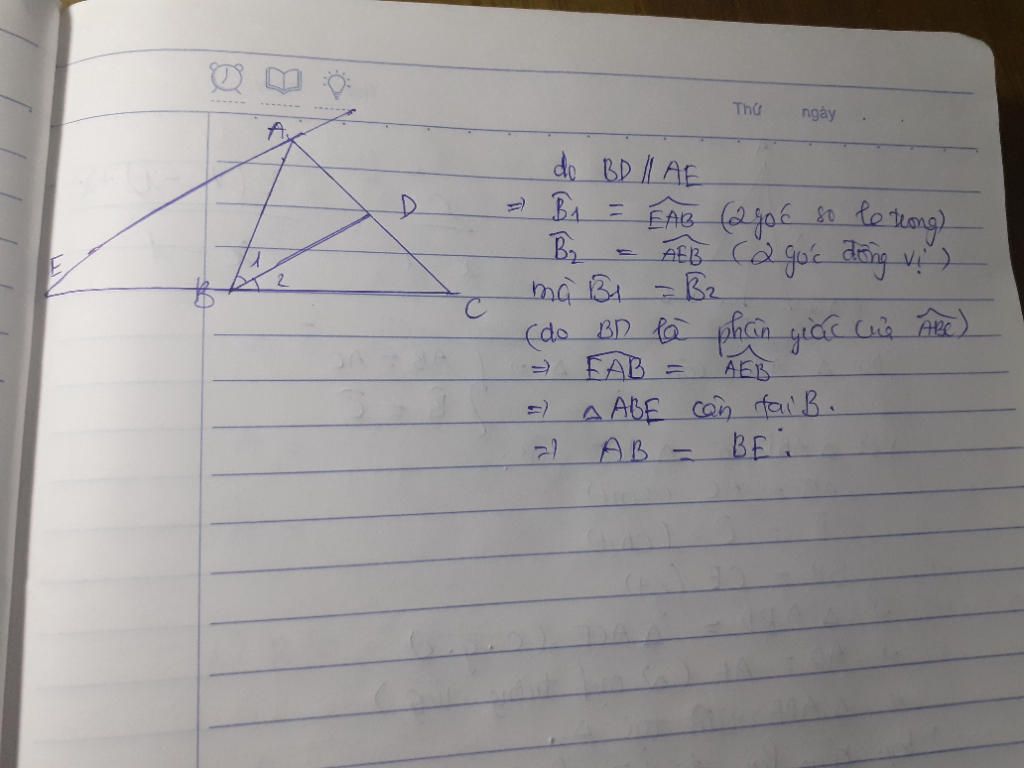 Thứ ngày
A
D
E
1
B
2
C
do BD // AE
=> B̂1 = ÊAB (2 góc so le trong)
B̂2 = ÂEB (2 góc đồng vị)
mà B̂1 = B̂2
(do BD là phân giác của ÂBC)
=> ÊAB = ÂEB
=> △ ABE cân tại B.
=> AB = BE.